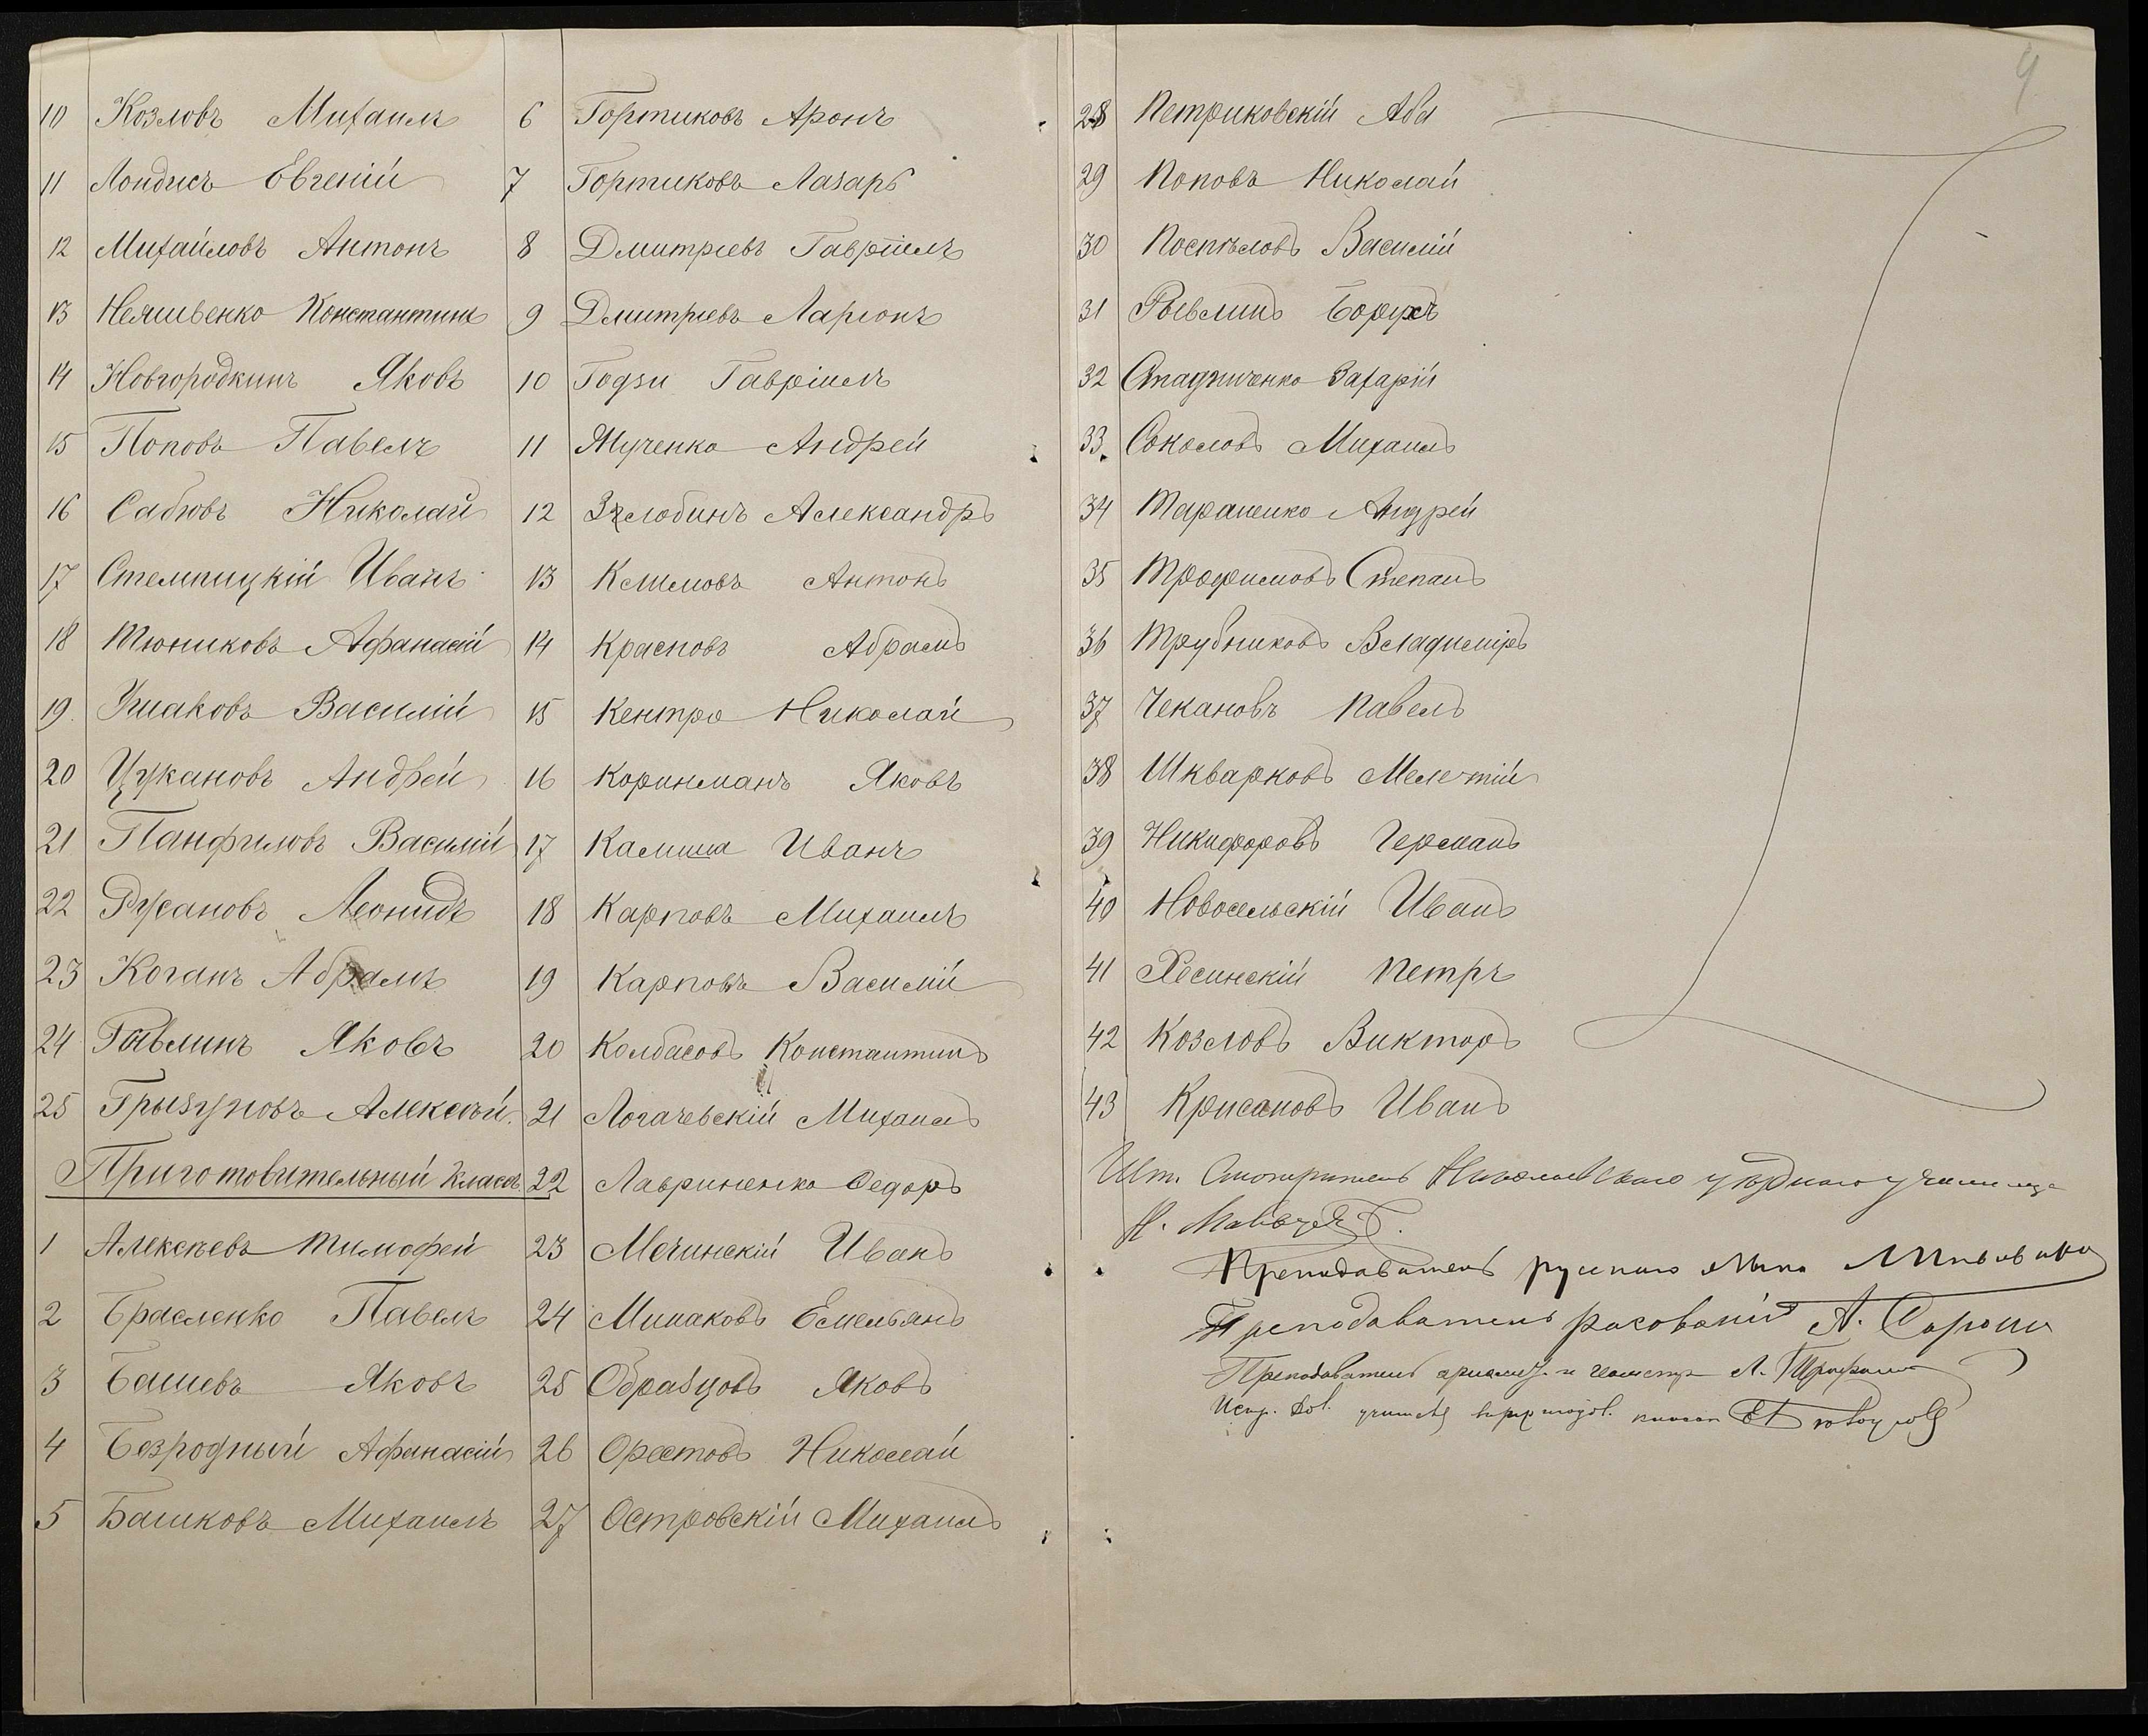 10 Козловъ Михаилъ
11 Лондисъ Евгеній
12 Михайловъ Антонъ
13 Константинъ
14 Новгородкинъ Яковъ
15 Поповъ Павелъ
16 Николай
17 Стемпицкій Иванъ
18 Тюниковъ Афанасій
19 Ушаковъ Василій
20 Цукановъ Андрей
21 Панфиловъ Василій
22 Русановъ Леонидъ
23 Коганъ Абрамъ
24 Рывлинъ Яковъ
25 Грызуновъ Алексѣй
Приготовительный классъ
1 Алексѣевъ Тимофей
2 Брасленко Павелъ
3 Яковъ
4 Безродный Афанасій
5 Башковъ Михаилъ
6 Гортиковъ Аронъ
7 Гортиковъ Лазарь
8 Дмитріевъ Гавріилъ
9 Дмитріевъ Ларіонъ
10 Годзи Гавріилъ
11 Андрей
12 Злобинъ Александръ
13 Климовъ Антонъ
14 Красновъ Абрамъ
15 Кентро Николай
16 Коринманъ Яковъ
17 Иванъ
18 Карповъ Михаилъ
19 Карповъ Василій
20 Колбасовъ Константинъ
21 Логачевскій Михаилъ
22 Лавриненко Ѳедоръ
23 Мечинскій Иванъ
24 Минаковъ Емельянъ
25 Образцовъ Яковъ
26 Орестовъ Николай
27 Островскій Михаилъ
9
28 Петриковскій Аба
29 Поповъ Николай
30 Поспѣловъ Василій
31 Рывлинъ Борухъ
32 Стадниченко Захарій
33 Соколовъ Михаилъ
34 Тараненко Андрей
35 Трофимовъ Степанъ
36 Трубниковъ Владиміръ
37 Чекановъ Павелъ
38 Шкварковъ Мелетій
39 Никифоровъ Германъ
40 Новосельскій Иванъ
41 Хесинскій Петръ
42 Козловъ Викторъ
43 Крисановъ Иванъ
Шт. Смотритель Николаевскаго уѣзднаго училища
Преподаватель русскаго языка
Преподаватель рисованія А.
Преподаватель и геометр. Л.